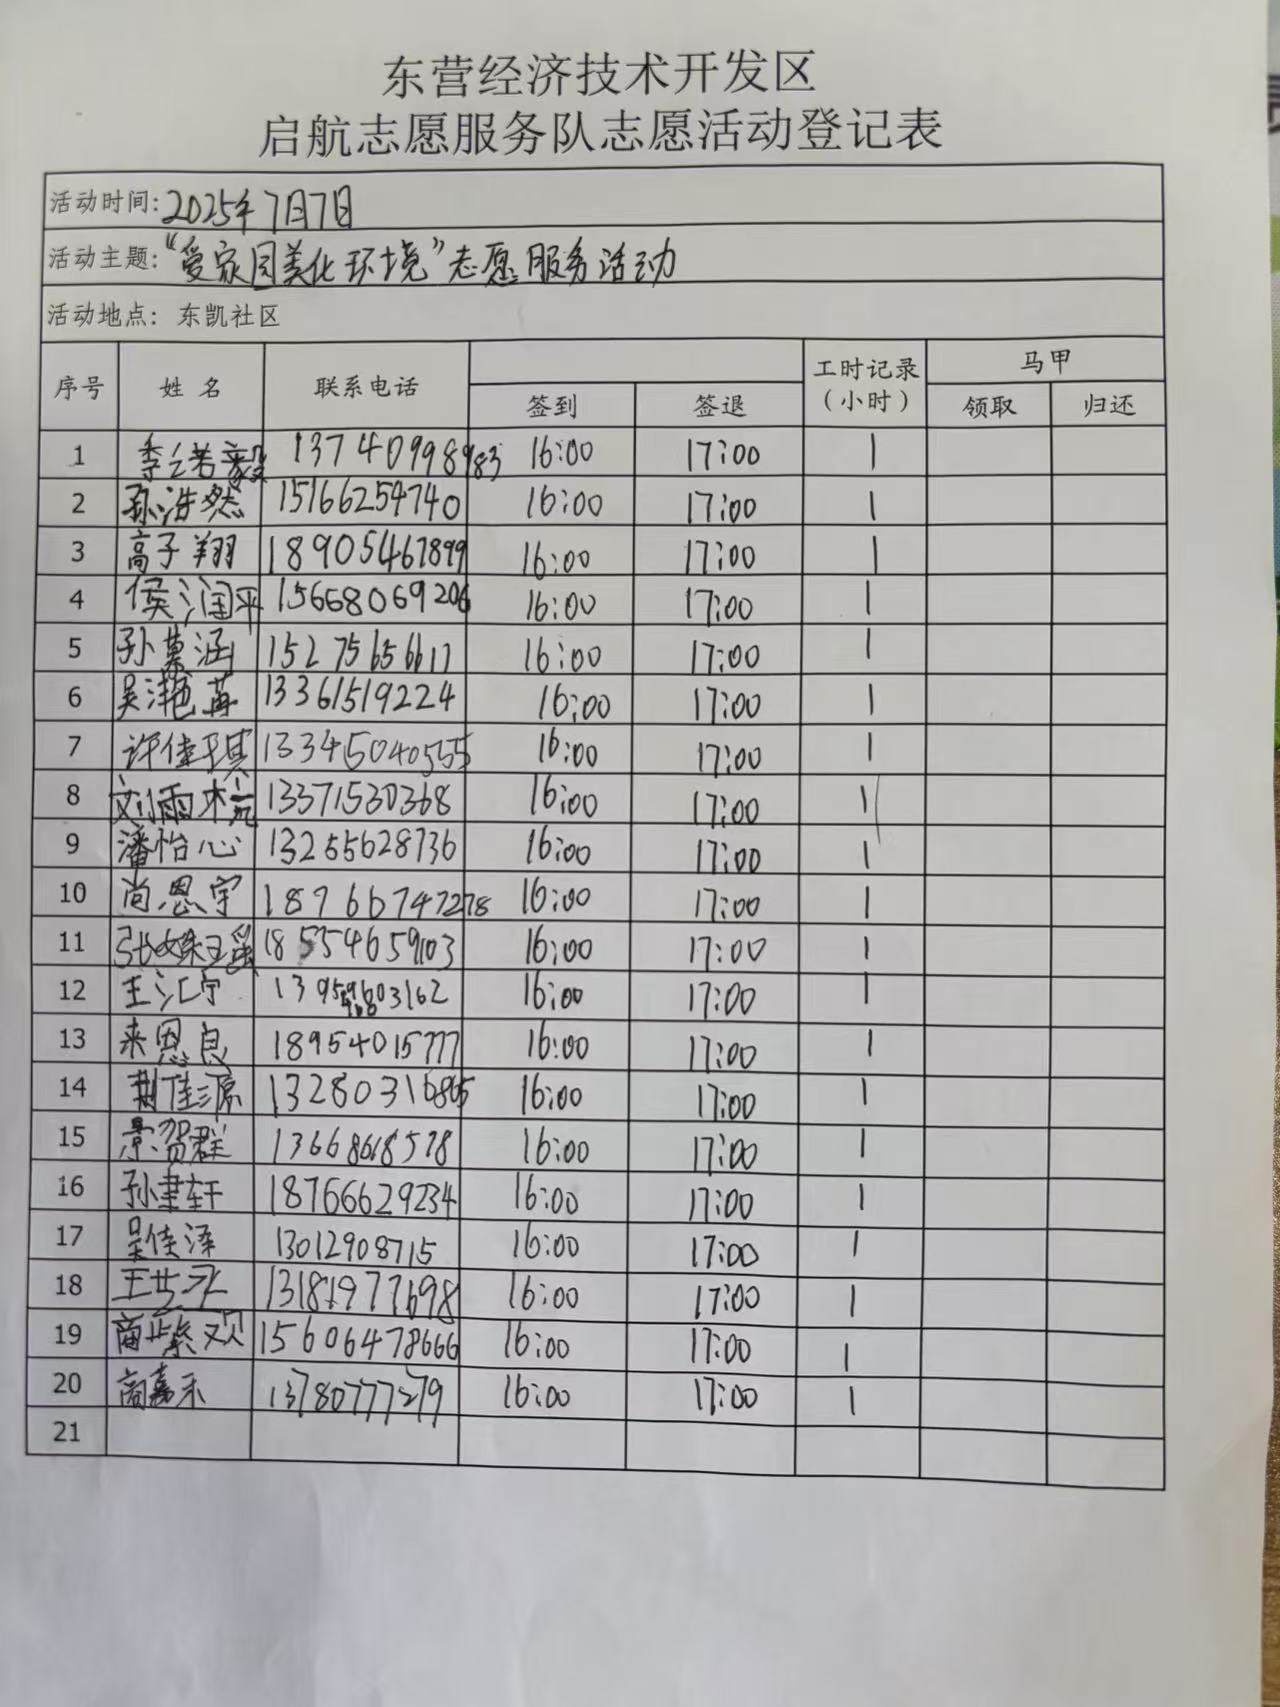 东营经济技术开发区
启航志愿服务队志愿活动登记表
活动时间：2025年7月7日
活动主题：“爱家园美化环境”志愿服务活动
活动地点：东凯社区
序号 姓名 联系电话 签到 签退 工时记录（小时） 马甲 领取 归还
1 16:00 17:00 1
2 孙浩然 15166254740 16:00 17:00 1
3 高子翔 18905467899 16:00 17:00 1
4 侯润平 15668069206 16:00 17:00 1
5 孙慕涵 15275656617 16:00 17:00 1
6 13361519224 16:00 17:00 1
7 许佳琪 13345040555 16:00 17:00 1
8 刘雨桅 13371530368 16:00 17:00 1
9 潘怡心 13255628736 16:00 17:00 1
10 尚恩宇 18766747278 16:00 17:00 1
11 18554659103 16:00 17:00 1
12 王汇宁 16:00 17:00 1
13 来恩良 18954015777 16:00 17:00 1
14 荆佳源 13280316865 16:00 17:00 1
15 景贺群 13668618578 16:00 17:00 1
16 孙聿轩 18766629234 16:00 17:00 1
17 吴佳泽 13012908715 16:00 17:00 1
18 16:00 17:00 1
19 商紫观 15606478666 16:00 17:00 1
20 商嘉禾 13780777279 16:00 17:00 1
21